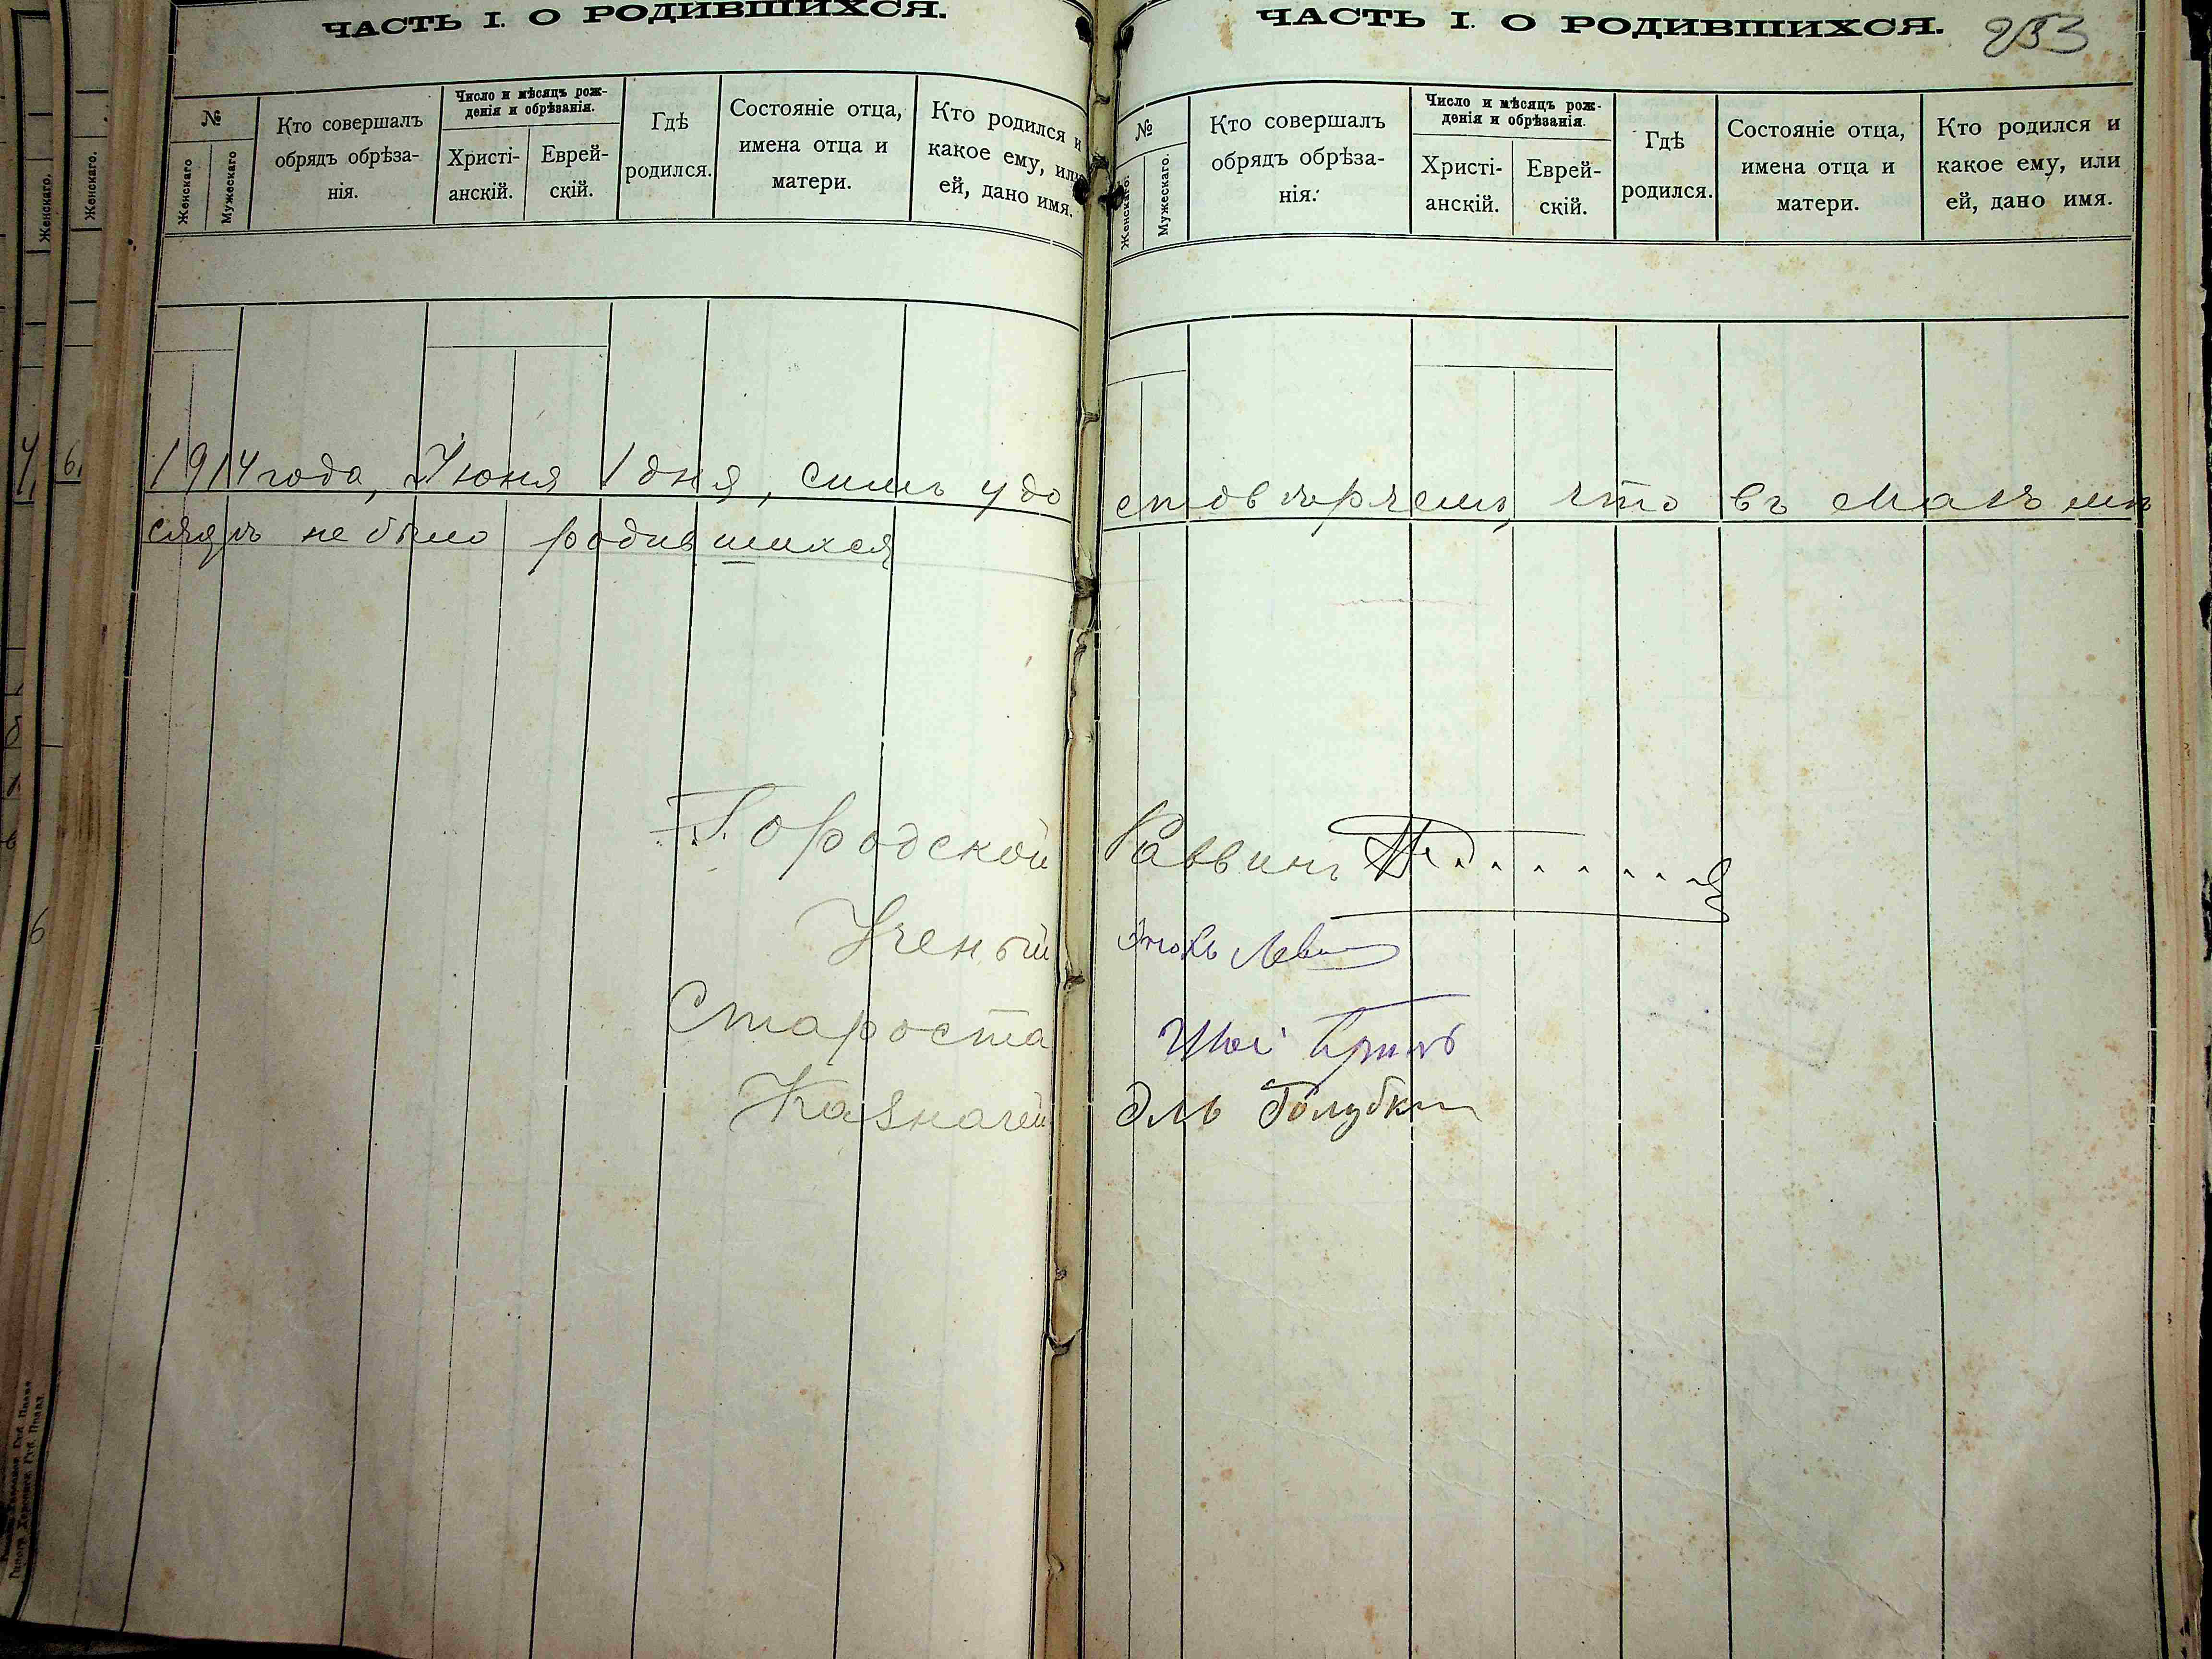 ЧАСТЬ I. О РОДИВШИХСЯ.
№
Женскаго
Мужескаго
Кто совершалъ
обрядъ обрѣза-
нія.
Число и мѣсяцъ рож-
денія и обрѣзанія.
Христі-
анскій.
Еврей-
скій.
Гдѣ
родился.
Состояніе отца,
имена отца и
матери.
Кто родился и
какое ему, или
ей, дано имя.
ЧАСТЬ I. О РОДИВШИХСЯ.
253
№
Женскаго.
Мужескаго.
Кто совершалъ
обрядъ обрѣза-
нія.
Число и мѣсяцъ рож-
денія и обрѣзанія.
Христі-
анскій.
Еврей-
скій.
Гдѣ
родился.
Состояніе отца,
имена отца и
матери.
Кто родился и
какое ему, или
ей, дано имя.
1914 года, Июня 1 дня, симъ удо стовѣряемъ, что въ Маѣ мѣ
сяцѣ не было родившихся
Городской Раввинъ
Ученый Левин
Староста
Казначей Эль Голубкин
Женскаго.
Женскаго.
6
6